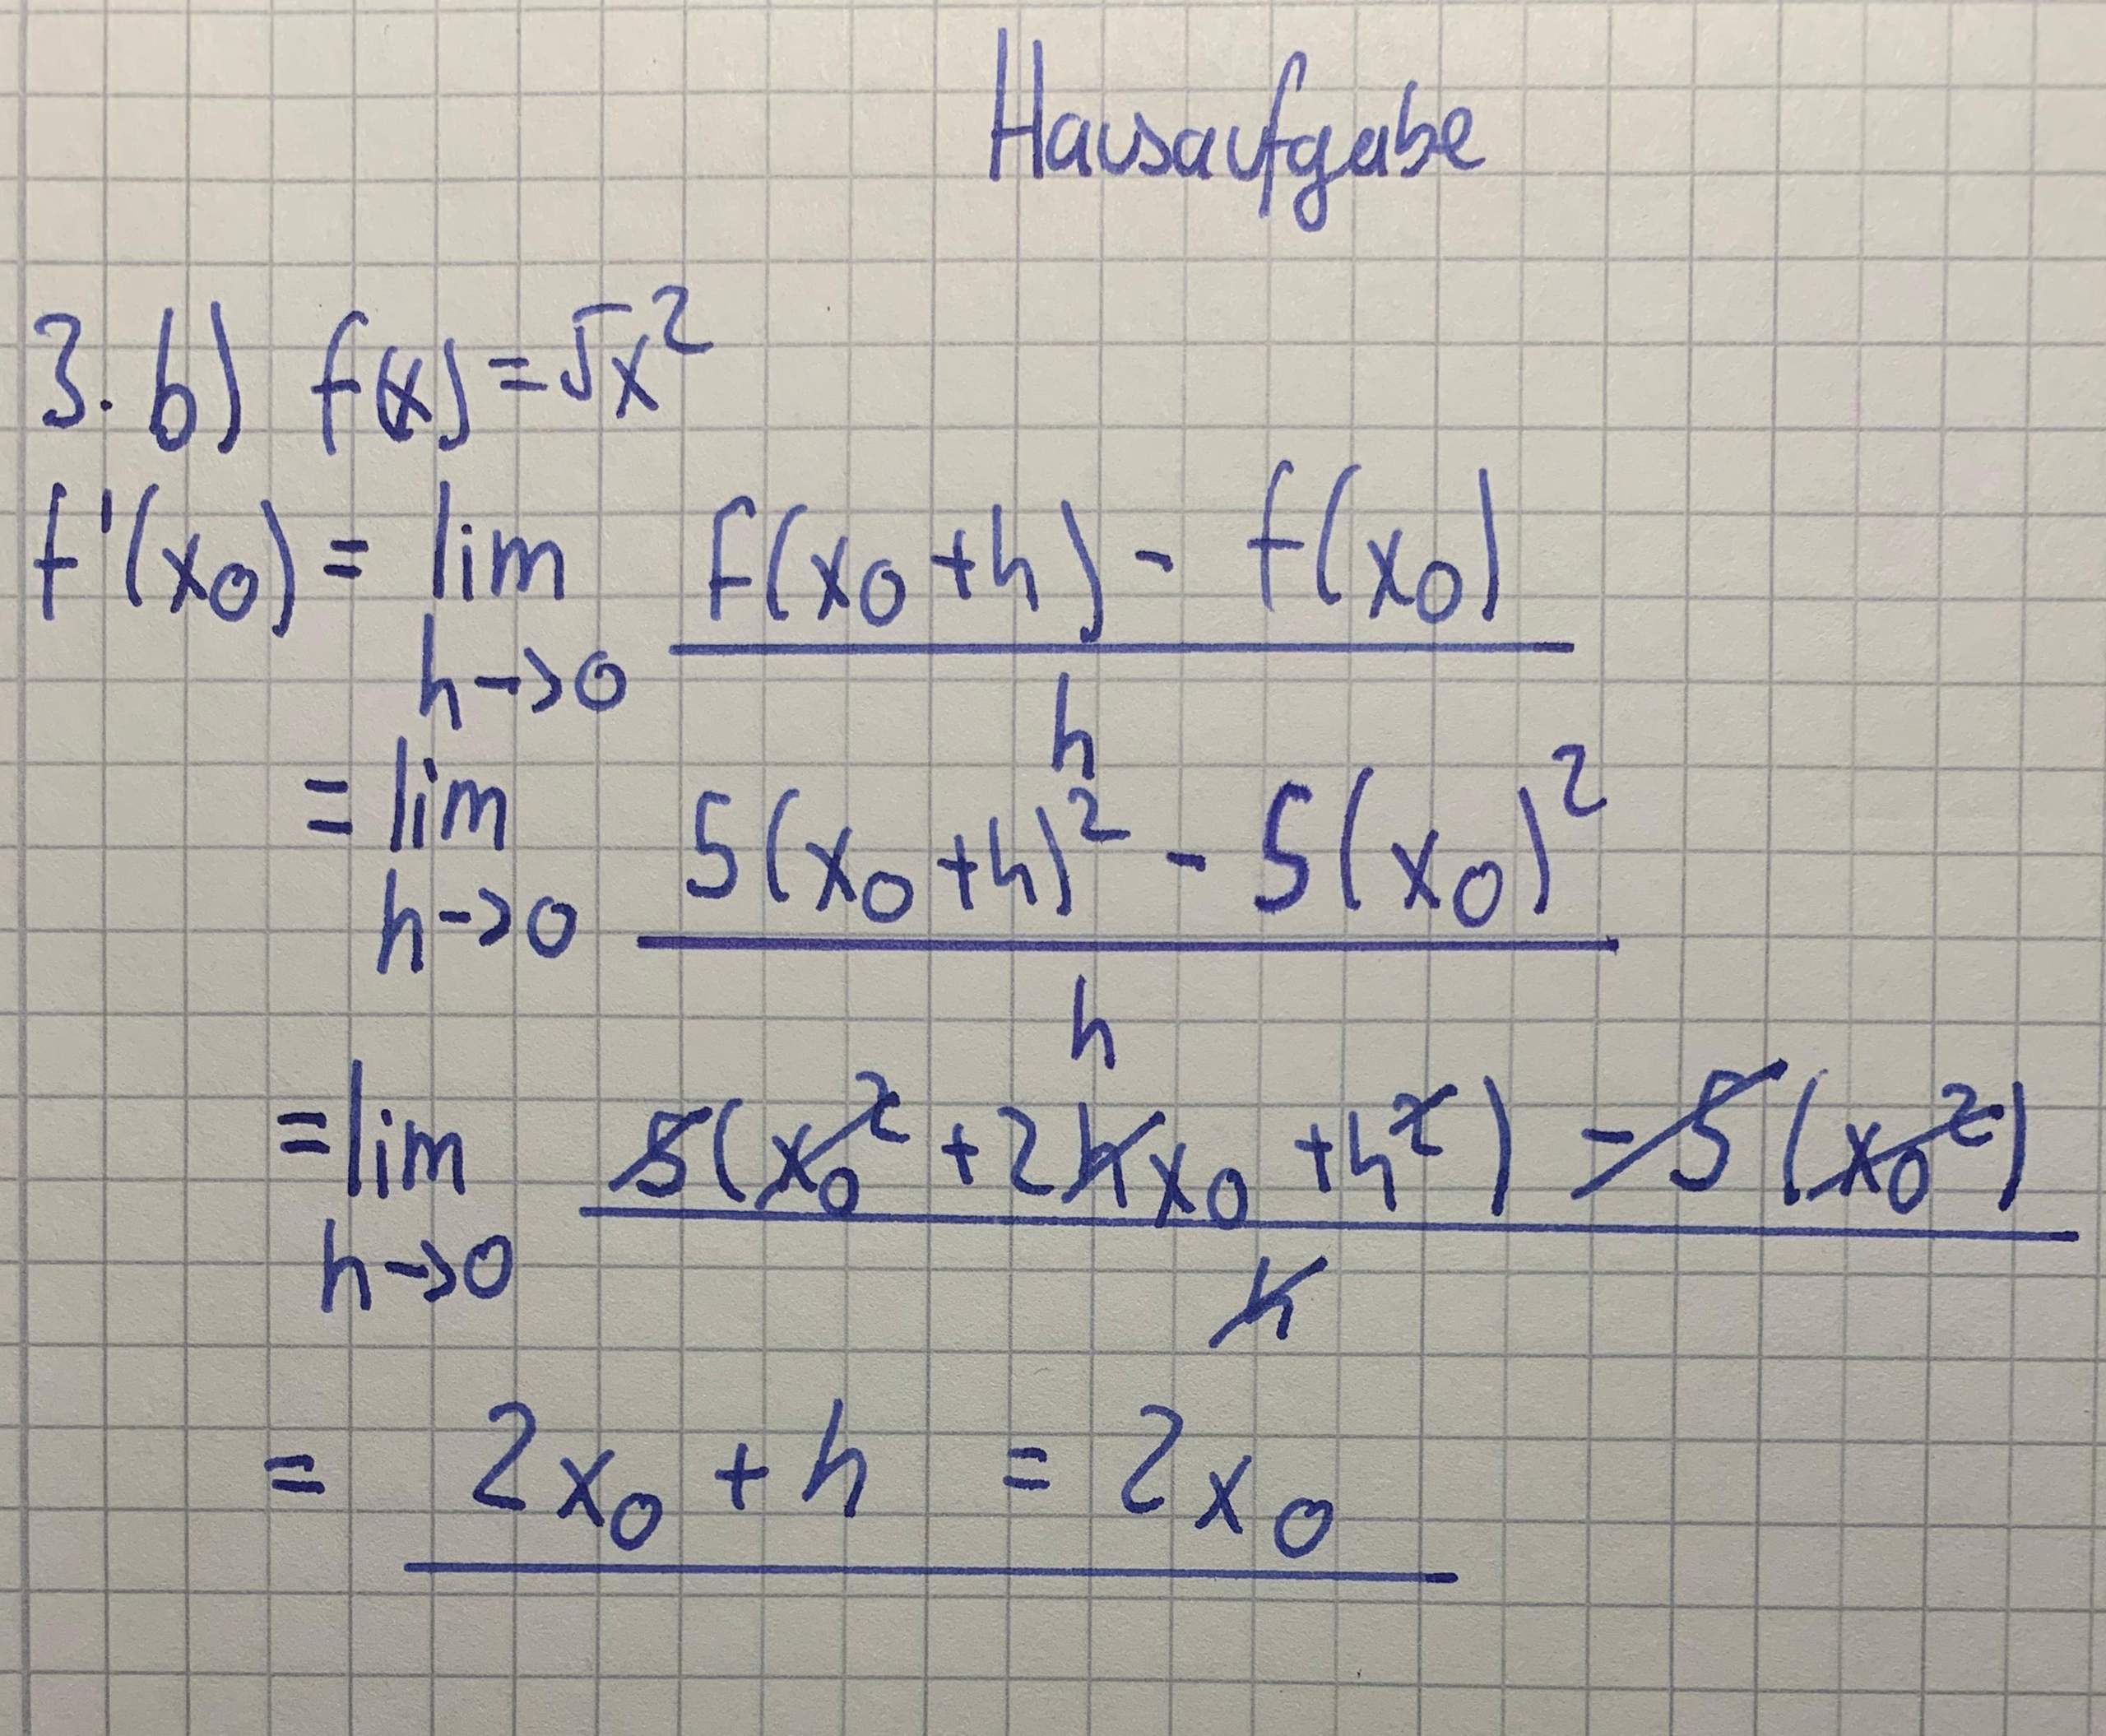 Hausaufgabe
3. b) f(x) = 5x²
f'(x₀) = lim h->0 f(x₀+h) - f(x₀) / h
= lim h->0 5(x₀+h)² - 5(x₀)² / h
= lim h->0 5(x₀² + 2hx₀ + h²) - 5(x₀²) / h
= 2x₀ + h = 2x₀